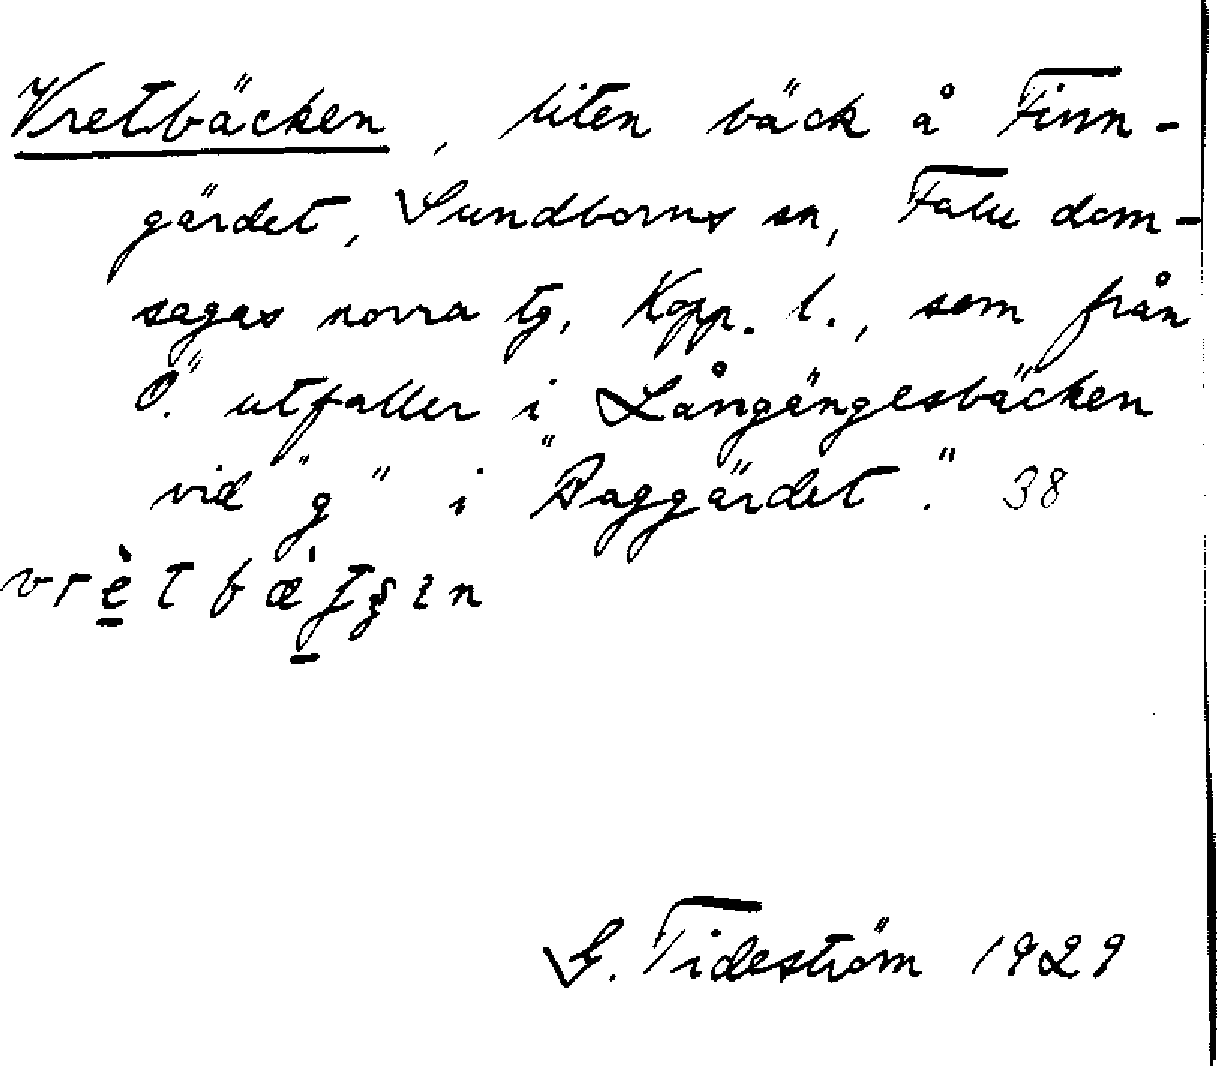 Vretbäcken, liten bäck å Finn-
gärdet, Sundborns sn, Falu dom-
sagas norra tg, Kopp. l., som från
Ö. utfaller i Långängesbäcken
vid "g" i "Baggärdet". 38
G. Tideström 1929